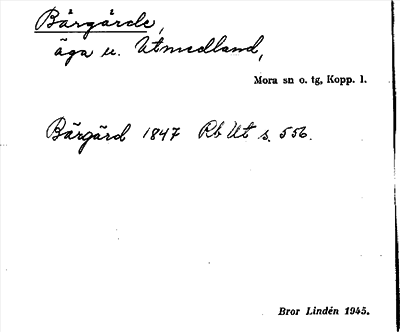 Bårgårde,
äga u. Utmedland,
Mora sn o. tg, Kopp. l.
Bårgård 1847 Rb Ut s. 556.
Bror Lindén 1945.